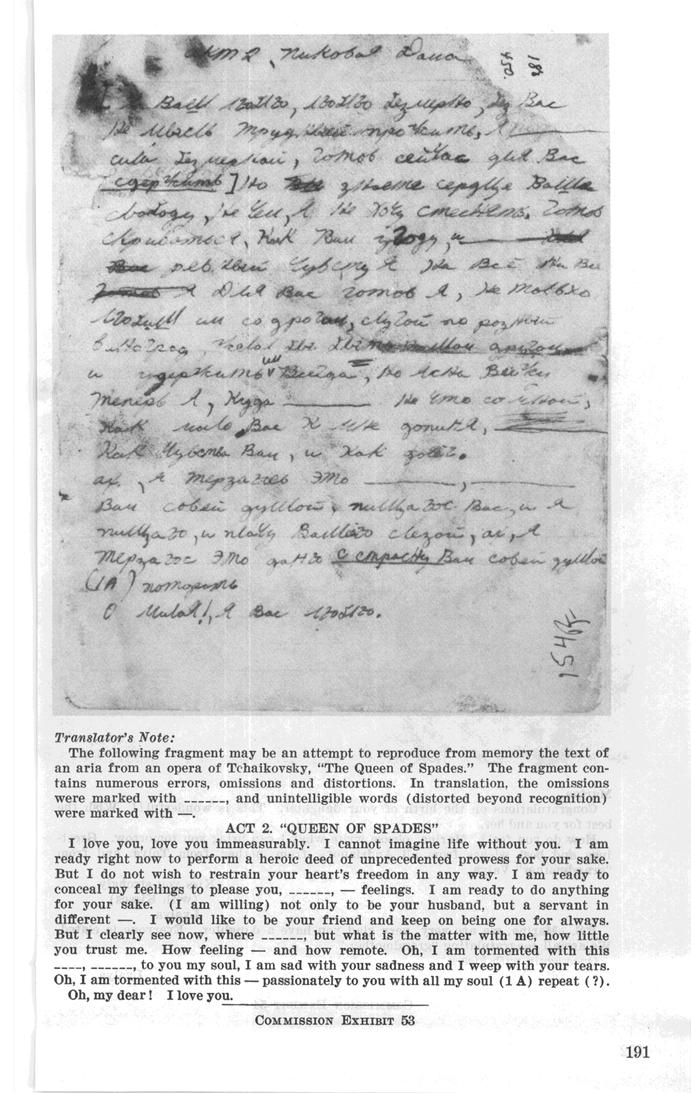 Акт 2, Пиковая Дама
450. 182
Вам люблю, люблю безмерно, без Вас
не мыслю прожить, я
безмерной, готов сейчас для Вас
но сердце Ваша
свободу, не чем, я не хочу стеснять. готов
Как Вам угоду, и
я Для Вас готов я, не только
слугой по розный
и но ясна вейжу
Теперь я, куда но что со мной,
как мало Вас к мне
Как Чувство Вам, и как
ах, я терзаюсь это
Вам совей душой, Вас, и я
и плачу слезой, ах, я
Терзаюс Это с страсну Вам совей душой
(1A) поторить
О Милая!, я Вас люблю.
15465
Translator's Note:
The following fragment may be an attempt to reproduce from memory the text of
an aria from an opera of Tchaikovsky, "The Queen of Spades." The fragment con-
tains numerous errors, omissions and distortions. In translation, the omissions
were marked with ------, and unintelligible words (distorted beyond recognition)
were marked with —.
ACT 2. "QUEEN OF SPADES"
I love you, love you immeasurably. I cannot imagine life without you. I am
ready right now to perform a heroic deed of unprecedented prowess for your sake.
But I do not wish to restrain your heart's freedom in any way. I am ready to
conceal my feelings to please you, ------, — feelings. I am ready to do anything
for your sake. (I am willing) not only to be your husband, but a servant in
different —. I would like to be your friend and keep on being one for always.
But I clearly see now, where ------, but what is the matter with me, how little
you trust me. How feeling — and how remote. Oh, I am tormented with this
----, ------, to you my soul, I am sad with your sadness and I weep with your tears.
Oh, I am tormented with this — passionately to you with all my soul (1 A) repeat (?).
Oh, my dear! I love you.
COMMISSION EXHIBIT 53
191